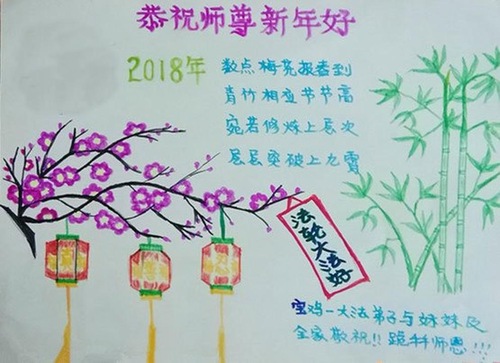 恭祝师尊新年好
2018年
数点梅花报春到
青竹相迎节节高
宛若修炼上层次
层层突破上九霄
法轮大法好
宝鸡一大法弟子与妹妹及
全家敬祝!! 跪拜师恩!!!